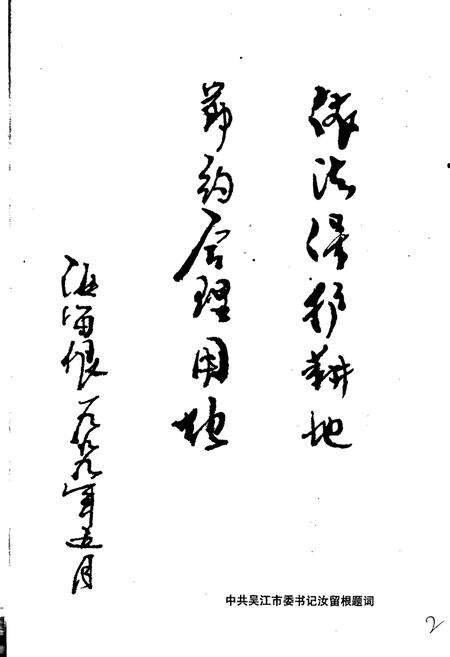 依法保护耕地
节约合理用地
汝留根一九九九年五月
中共吴江市委书记汝留根题词
2